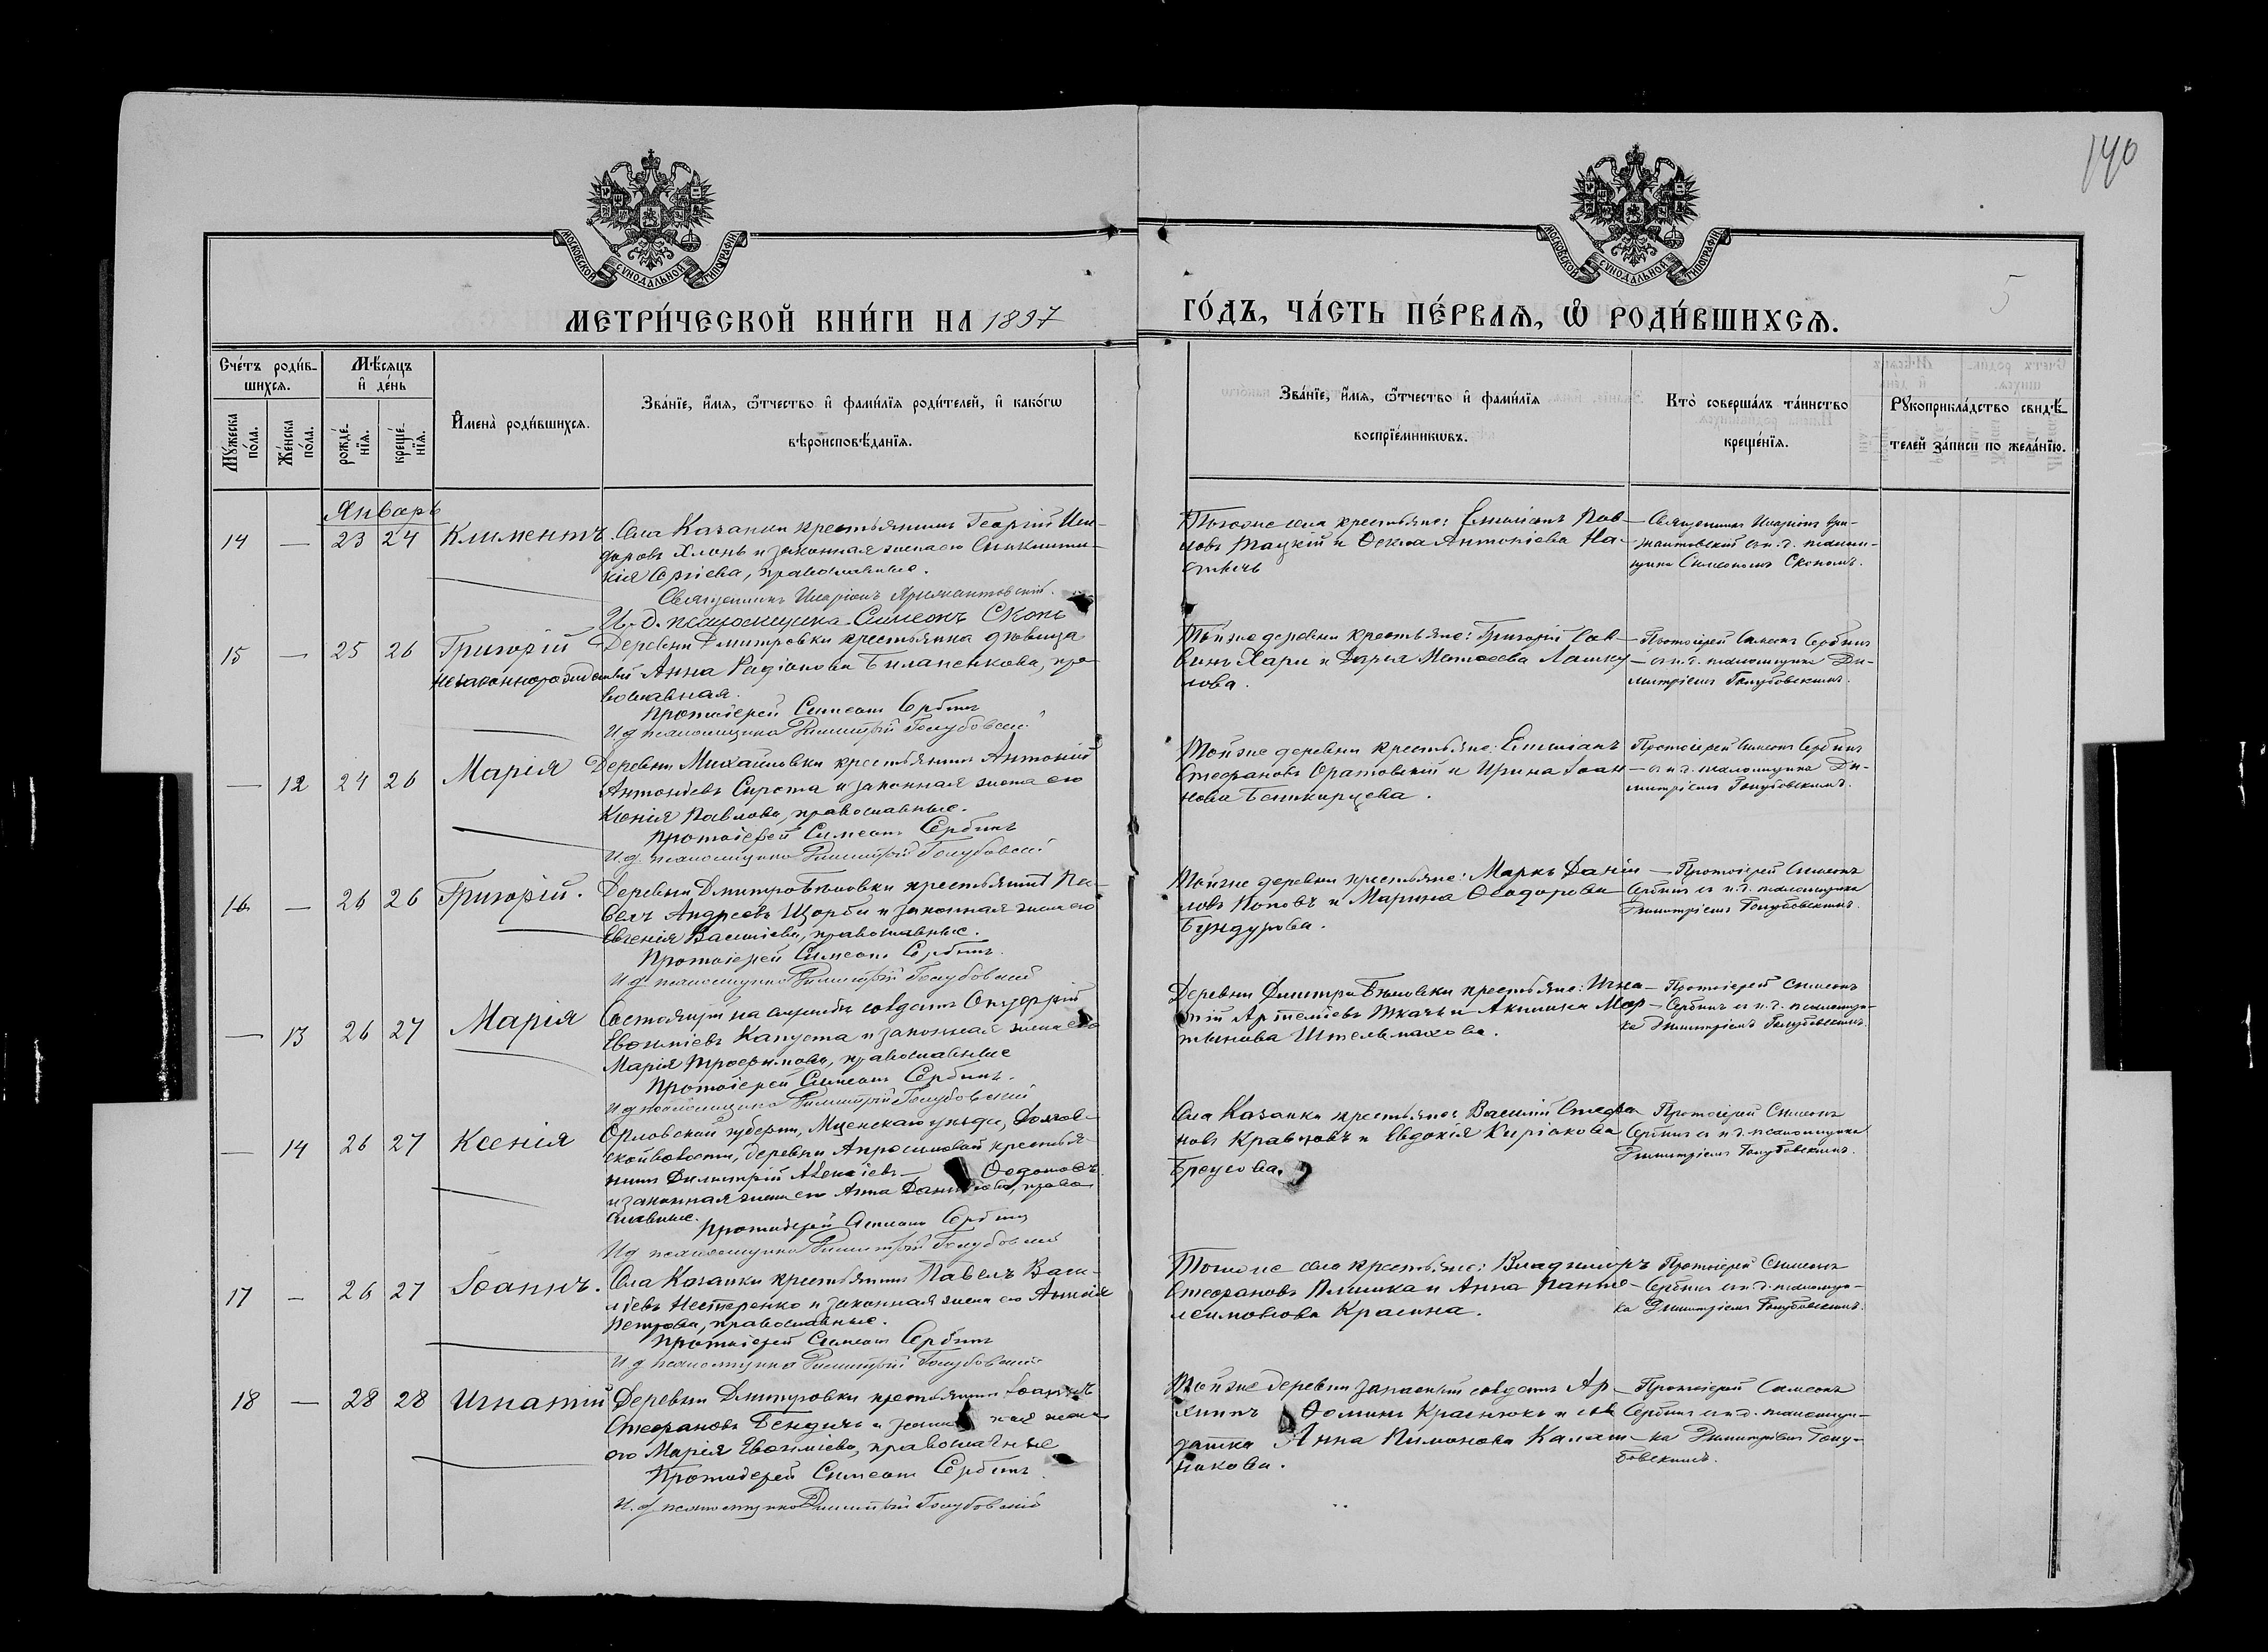 140
5
МОСКОВСКОЙ СѴНОДАЛЬНОЙ ТИПОГРАФІИ
МОСКОВСКОЙ СѴНОДАЛЬНОЙ ТИПОГРАФІИ
МЕТРИ́ЧЕСКОЙ КНИ́ГИ НА 1897
ГО́ДЪ, ЧА́СТЬ ПЕ́РВАѦ, Ѡ҆ РОДИ́ВШИХСѦ.
Сче́тъ роди́в-
шихсѧ.
Мꙋ́жеска по́ла.
Же́нска по́ла.
Мѣ́сѧцъ
и҆ де́нь
рожде́-
нїѧ.
креще́-
нїѧ.
И҆мена̀ роди́вшихсѧ.
Зва́нїе, и҆́мѧ, ѻ҆́тчество и҆ фами́лїѧ роди́телей, и҆ како́гѡ
вѣроисповѣ́данїѧ.
Зва́нїе, и҆́мѧ, ѻ҆́тчество и҆ фами́лїѧ
воспрїе́мникѡвъ.
Кто̀ соверша́лъ та́инство
креще́нїѧ.
Рꙋкоприкла́дство свидѣ́-
телей за́писи по жела́нїю.
Январь
14 — 23 24 Климентъ. Села Казанки крестьянинъ Георгій
Хлонь и законная жена его
кія Сергіева, православные.
Священникъ Иларіонъ
И. д. псаломщика Симеонъ Скопъ
Тогоже села крестьяне: Емиліанъ Пав-
ловъ и Антоніева На-
Священникъ Иларіонъ
съ и. д. псалом-
щика Симеономъ Скопомъ.
15 — 25 26 Григорій
незаконнорожденный
Деревни Дмитровки крестьянка дѣвица
Анна Радіонова Биланенкова, пра-
вославная.
Протоіерей Симеонъ Сербинъ
И д псаломщика Димитрій Голубовскій
Тойже деревни крестьяне: Григорій Сав-
винъ Хари и Дарья Матѳеева Лашку-
лова.
Протоіерей Симеонъ Сербинъ
съ и. д. псаломщика Ди-
митріемъ Голубовскимъ.
— 12 24 26 Марія
Деревни Михайловки крестьянинъ Антоній
Антоніевъ Сирота и законная жена его
Ксенія Павлова, православные.
Протоіерей Симеонъ Сербинъ
И. д. псаломщика Димитрій Голубовскій
Тойже деревни крестьяне: Емиліанъ
Стефановъ Оратовскій и Ирина Іоан-
нова Башкирцева.
Протоіерей Симеонъ Сербинъ
съ и. д. псаломщика Ди-
митріемъ Голубовскимъ.
16 — 26 26 Григорій.
Деревни Дмитро-Бѣловки крестьянинъ Па-
велъ Андреевъ Щорба и законная жена его
Евгенія Васильева, православные.
Протоіерей Симеонъ Сербинъ.
И д. псаломщика Димитрій Голубовскій
Тойже деревни крестьяне: Маркъ Даніи-
ловъ Поповъ и Марина Ѳеодорова
Бундурова.
Протоіерей Симеонъ
Сербинъ съ и. д. псаломщика
Димитріемъ Голубовскимъ.
— 13 26 27 Марія
Состоящій на службѣ солдатъ Онуфрій
Евѳиміевъ Капуста и законная жена его
Марія Трофимова, православные
Протоіерей Симеонъ Сербинъ.
И д псаломщика Димитрій Голубовскій
Деревни Дмитро-Бѣловки крестьяне: Игна-
тій Артеміевъ Ткачъ и Акилина Мар-
тынова Штельмахова.
Протоіерей Симеонъ
Сербинъ съ и. д. псаломщи-
ка Димитріемъ Голубовскимъ.
— 14 26 27 Ксенія
Орловской губерніи, Мценскаго уѣзда,
ской волости, деревни крестья-
нинъ Димитрій Алексіевъ — Ѳедотовъ
и законная жена его Анна Даниілова, право-
славные.
Протоіерей Симеонъ Сербинъ
И д псаломщика Димитрій Голубовскій
Села Казанки крестьяне: Василій Стефа-
новъ Кравцовъ и Евдокія Киріакова
Бреусова.
Протоіерей Симеонъ
Сербинъ съ и. д. псаломщика
Димитріемъ Голубовскимъ.
17 — 26 27 Іоаннъ.
Села Казанки крестьянинъ Павелъ Васи-
ліевъ Нестеренко и законная жена его
Петрова, православные.
Протоіерей Симеонъ Сербинъ
И д псаломщика Димитрій Голубовскій
Тогоже села крестьяне: Владиміръ
Стефановъ Плишка и Анна Панте-
леимонова Красина.
Протоіерей Симеонъ
Сербинъ съ и. д. псаломщи-
ка Димитріемъ Голубовскимъ.
18 — 28 28 Игнатій
Деревни Дмитровки крестьянинъ Іоаннъ
Стефановъ Бендичъ и законная жена
его Марія Евѳиміева, православные
Протоіерей Симеонъ Сербинъ.
И. д. псаломщика Димитрій Голубовскій
Тойже деревни запасный солдатъ Ар-
хиппъ Ѳоминъ Краснюкъ и сол-
датка Анна Пимонова Калаш-
никова.
Протоіерей Симеонъ
Сербинъ съ и. д. псаломщи-
ка Димитріемъ Голу-
бовскимъ.